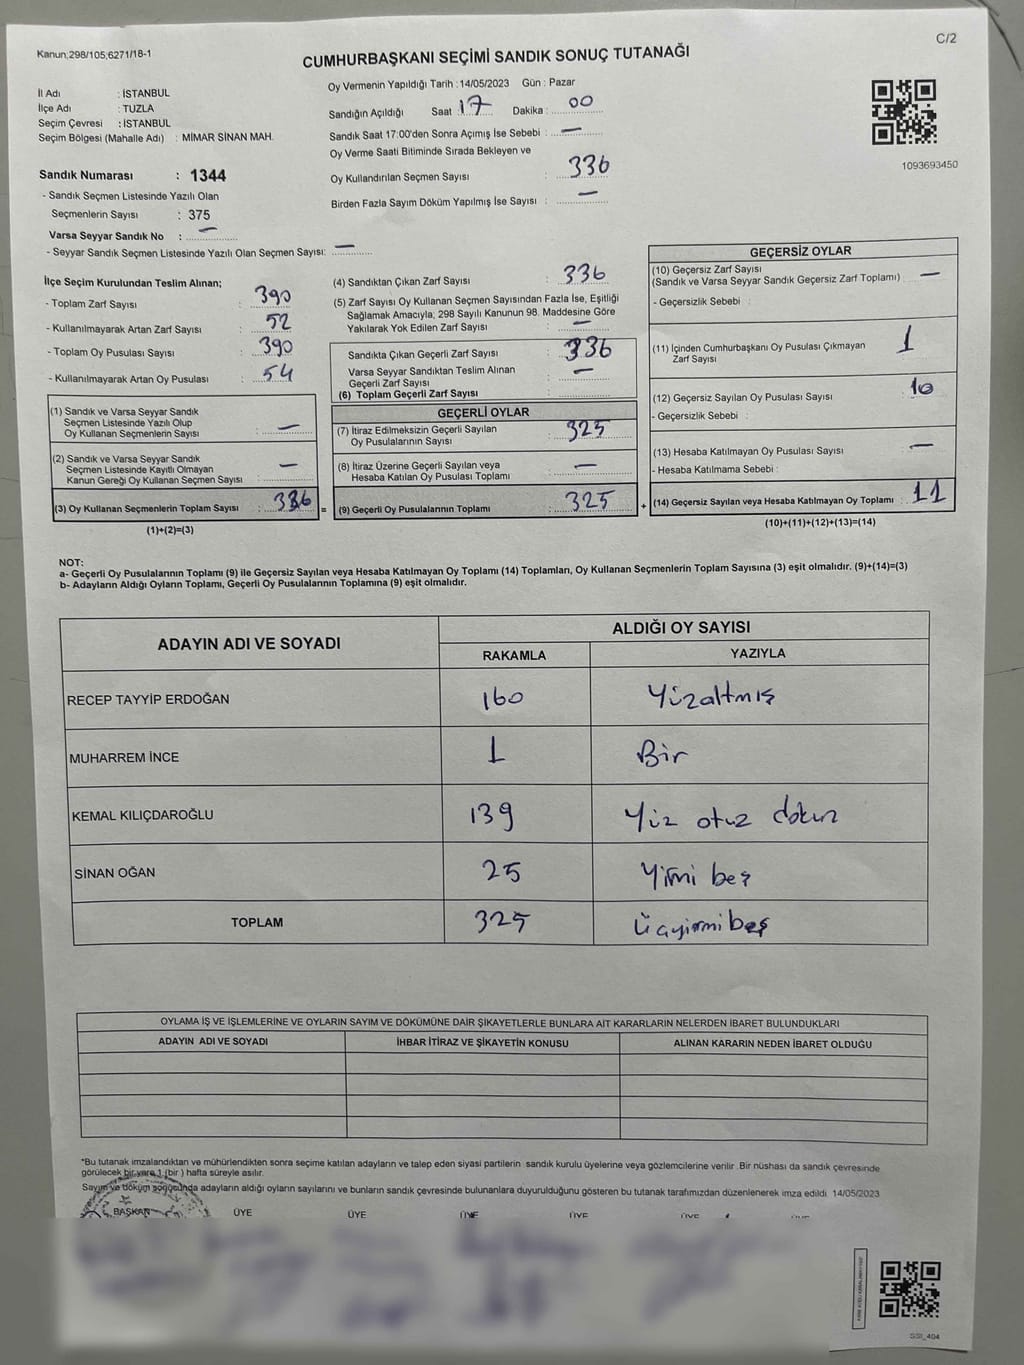 Kanun;298/105;6271/18-1
C/2
CUMHURBAŞKANI SEÇİMİ SANDIK SONUÇ TUTANAĞI
İl Adı : İSTANBUL
İlçe Adı : TUZLA
Seçim Çevresi : İSTANBUL
Seçim Bölgesi (Mahalle Adı) : MİMAR SİNAN MAH.
Sandık Numarası : 1344
- Sandık Seçmen Listesinde Yazılı Olan
Seçmenlerin Sayısı : 375
Varsa Seyyar Sandık No : —
- Seyyar Sandık Seçmen Listesinde Yazılı Olan Seçmen Sayısı: —
Oy Vermenin Yapıldığı Tarih : 14/05/2023 Gün : Pazar
Sandığın Açıldığı Saat : 17 Dakika : 00
Sandık Saat 17:00'den Sonra Açımış İse Sebebi : —
Oy Verme Saati Bitiminde Sırada Bekleyen ve
Oy Kullandırılan Seçmen Sayısı : 336
Birden Fazla Sayım Döküm Yapılmış İse Sayısı : —
1093693450
İlçe Seçim Kurulundan Teslim Alınan;
- Toplam Zarf Sayısı : 390
- Kullanılmayarak Artan Zarf Sayısı : 52
- Toplam Oy Pusulası Sayısı : 390
- Kullanılmayarak Artan Oy Pusulası : 54
(1) Sandık ve Varsa Seyyar Sandık
Seçmen Listesinde Yazılı Olup
Oy Kullanan Seçmenlerin Sayısı : —
(2) Sandık ve Varsa Seyyar Sandık
Seçmen Listesinde Kayıtlı Olmayan
Kanun Gereği Oy Kullanan Seçmen Sayısı : —
(3) Oy Kullanan Seçmenlerin Toplam Sayısı : 336 =
(1)+(2)=(3)
(4) Sandıktan Çıkan Zarf Sayısı : 336
(5) Zarf Sayısı Oy Kullanan Seçmen Sayısından Fazla İse, Eşitliği
Sağlamak Amacıyla, 298 Sayılı Kanunun 98. Maddesine Göre
Yakılarak Yok Edilen Zarf Sayısı : —
Sandıkta Çıkan Geçerli Zarf Sayısı : 336
Varsa Seyyar Sandıktan Teslim Alınan
Geçerli Zarf Sayısı : —
(6) Toplam Geçerli Zarf Sayısı :
GEÇERLİ OYLAR
(7) İtiraz Edilmeksizin Geçerli Sayılan
Oy Pusulalarının Sayısı : 325
(8) İtiraz Üzerine Geçerli Sayılan veya
Hesaba Katılan Oy Pusulası Toplamı : —
(9) Geçerli Oy Pusulalarının Toplamı : 325 +
GEÇERSİZ OYLAR
(10) Geçersiz Zarf Sayısı
(Sandık ve Varsa Seyyar Sandık Geçersiz Zarf Toplamı) : —
- Geçersizlik Sebebi :
(11) İçinden Cumhurbaşkanı Oy Pusulası Çıkmayan
Zarf Sayısı : 1
(12) Geçersiz Sayılan Oy Pusulası Sayısı : 10
- Geçersizlik Sebebi :
(13) Hesaba Katılmayan Oy Pusulası Sayısı : —
- Hesaba Katılmama Sebebi :
(14) Geçersiz Sayılan veya Hesaba Katılmayan Oy Toplamı : 11
(10)+(11)+(12)+(13)=(14)
NOT:
a- Geçerli Oy Pusulalarının Toplamı (9) ile Geçersiz Sayılan veya Hesaba Katılmayan Oy Toplamı (14) Toplamları, Oy Kullanan Seçmenlerin Toplam Sayısına (3) eşit olmalıdır. (9)+(14)=(3)
b- Adayların Aldığı Oyların Toplamı, Geçerli Oy Pusulalarının Toplamına (9) eşit olmalıdır.
ADAYIN ADI VE SOYADI ALDIĞI OY SAYISI
RAKAMLA YAZIYLA
RECEP TAYYİP ERDOĞAN 160 Yüzaltmış
MUHARREM İNCE 1 Bir
KEMAL KILIÇDAROĞLU 139 Yüz otuz dokuz
SİNAN OĞAN 25 Yirmi beş
TOPLAM 325 Üçyirmi beş
OYLAMA İŞ VE İŞLEMLERİNE VE OYLARIN SAYIM VE DÖKÜMÜNE DAİR ŞİKAYETLERLE BUNLARA AİT KARARLARIN NELERDEN İBARET BULUNDUKLARI
ADAYIN ADI VE SOYADI İHBAR İTİRAZ VE ŞİKAYETİN KONUSU ALINAN KARARIN NEDEN İBARET OLDUĞU
*Bu tutanak imzalandıktan ve mühürlendikten sonra seçime katılan adayların ve talep eden siyasi partilerin sandık kurulu üyelerine veya gözlemcilerine verilir .Bir nüshası da sandık çevresinde
görülecek bir yere 1 (bir ) hafta süreyle asılır.
Sayım ve döküm sonucunda adayların aldığı oyların sayılarını ve bunların sandık çevresinde bulunanlara duyurulduğunu gösteren bu tutanak tarafımızdan düzenlenerek imza edildi. 14/05/2023
BAŞKAN ÜYE ÜYE ÜYE ÜYE ÜYE
SSI_404